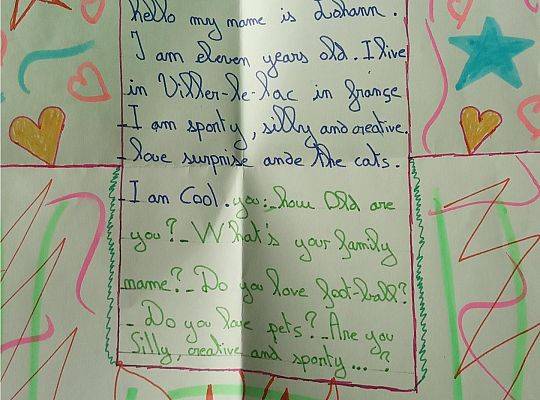 Hello my name is Lohann.
I am eleven years old. I live
in Viller-le-lac in françe
- I am sporty, silly and creative.
- love surprise ande the cats.
- I am Cool. you:_ how Old are
you?_ What's your family
name?_ Do you love foot-ball?
- Do you love pets?_ Are you
Silly, creative and sporty...?